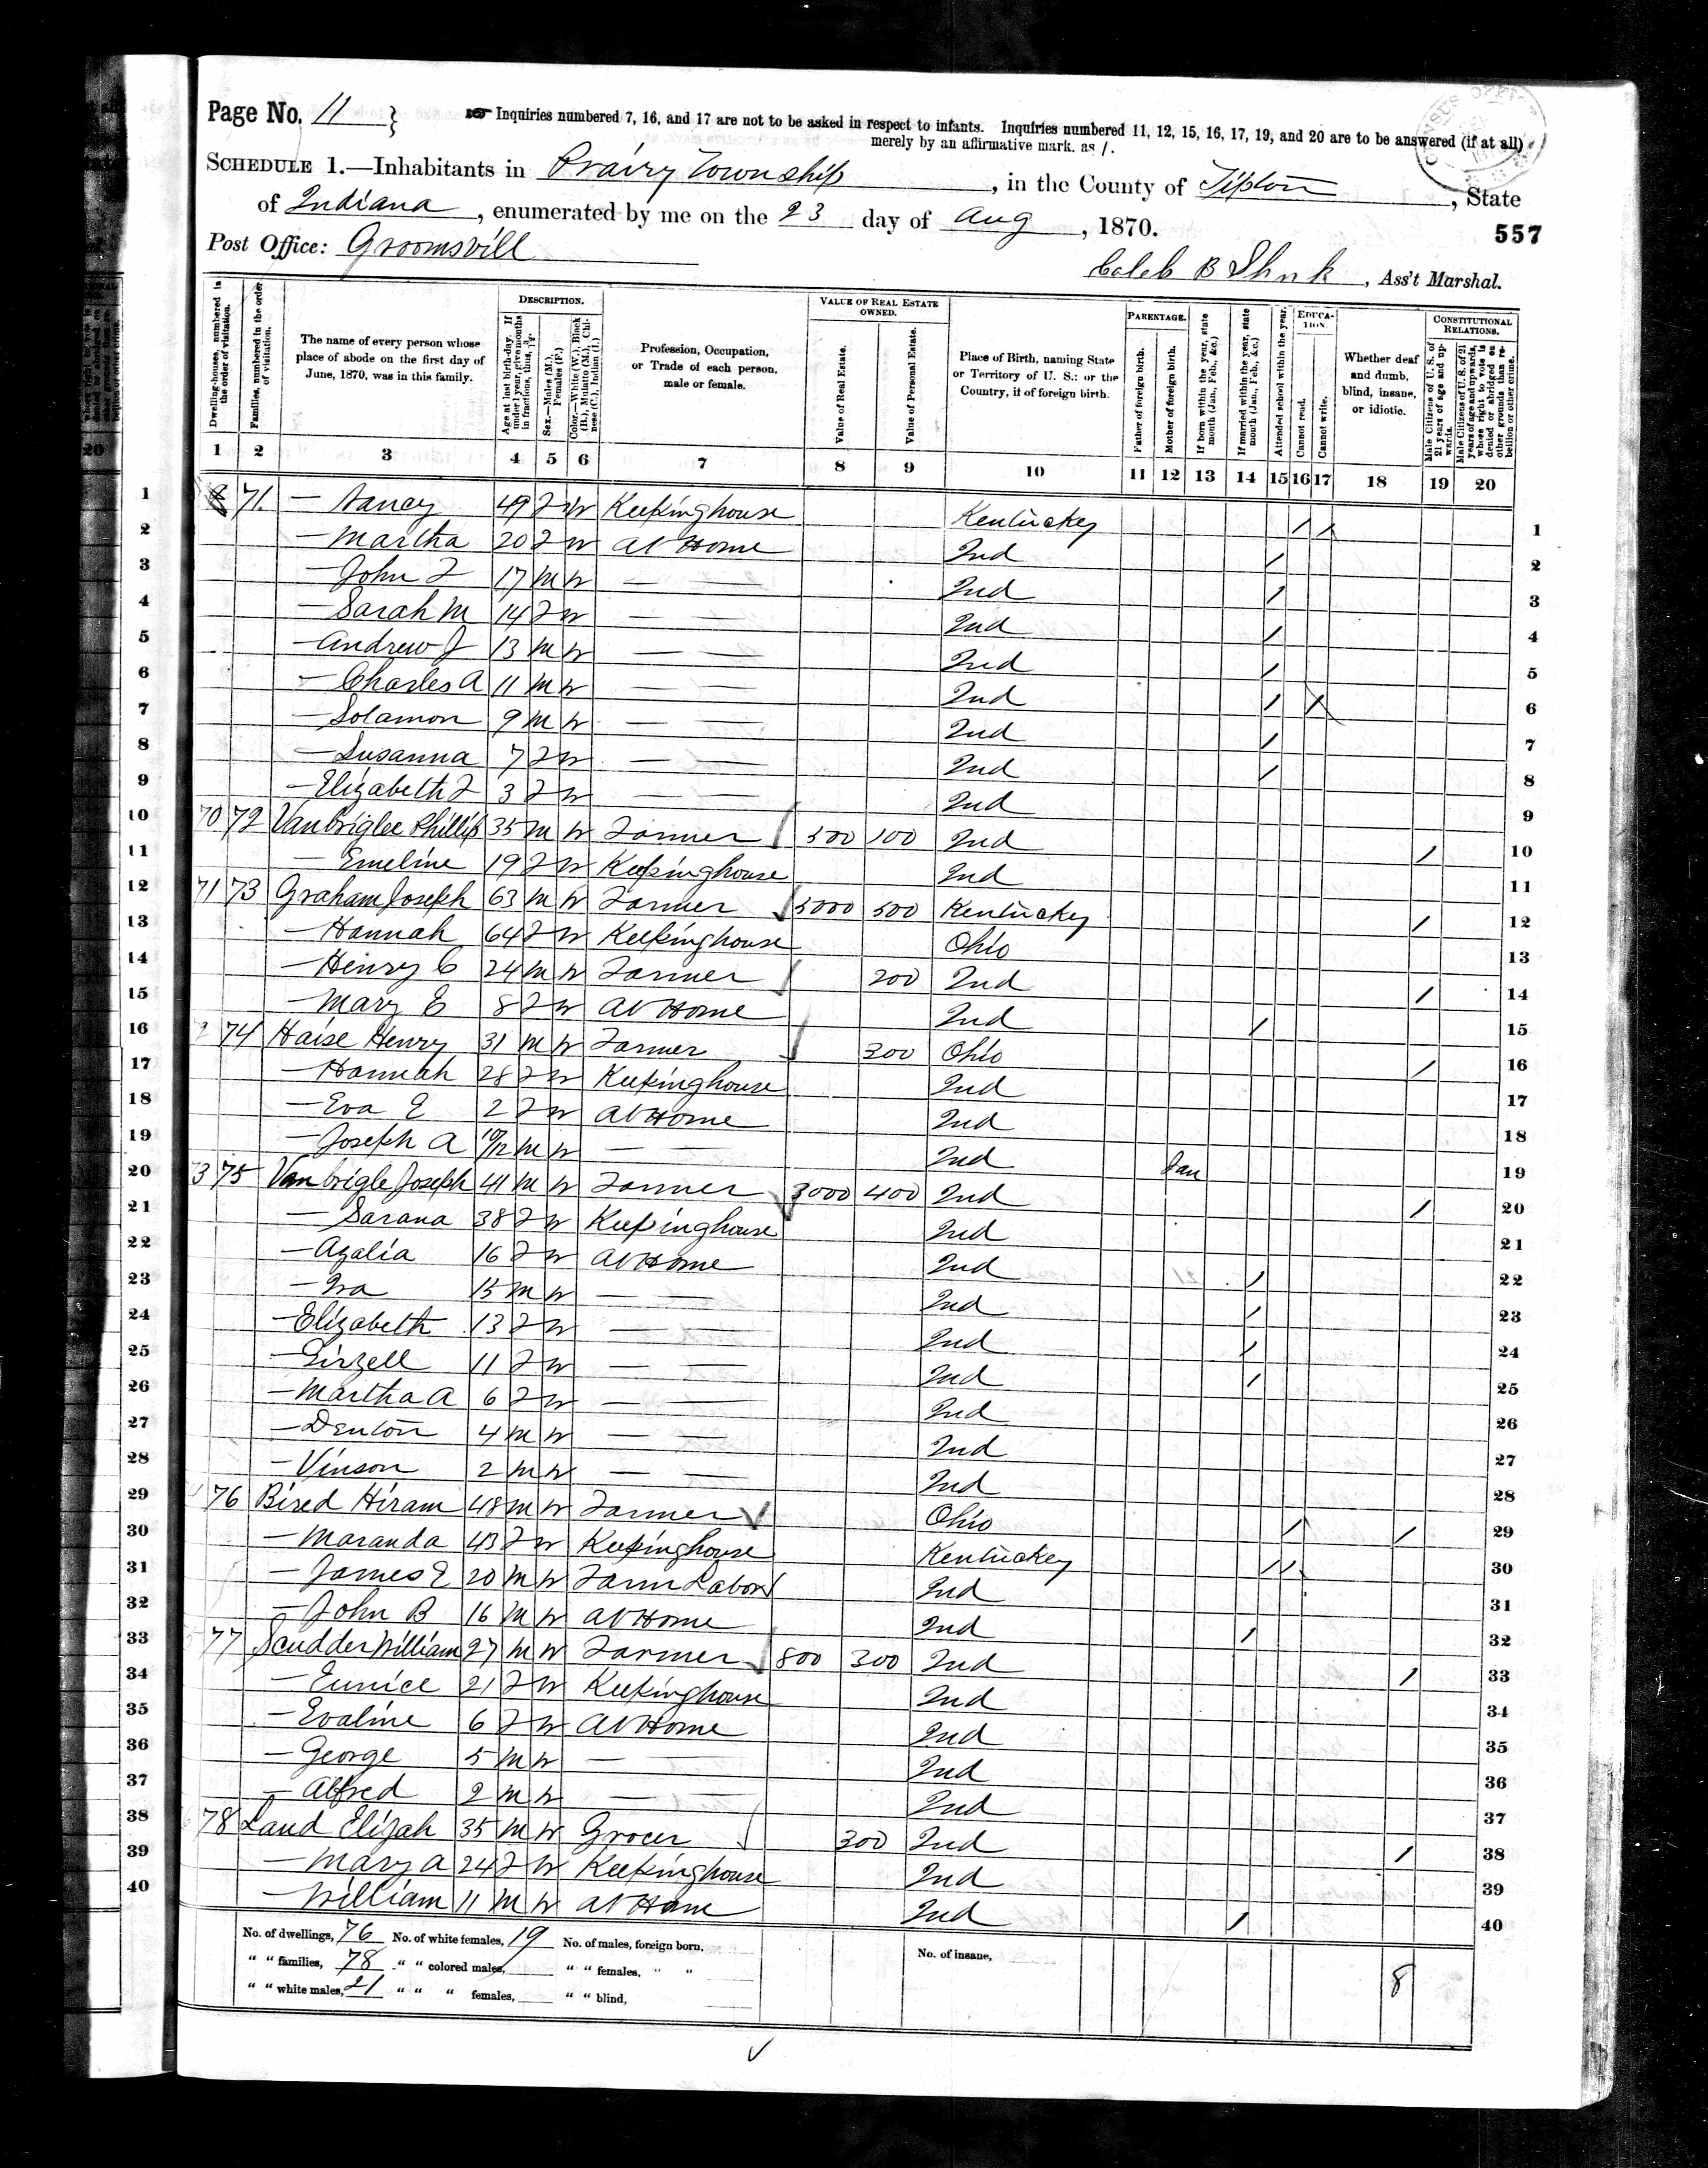 Page No. 11
Inquiries numbered 7, 16, and 17 are not to be asked in respect to infants. Inquiries numbered 11, 12, 15, 16, 17, 19, and 20 are to be answered (if at all)
merely by an affirmative mark, as /.
SCHEDULE 1.—Inhabitants in Prairy Township, in the County of Tipton, State
of Indiana, enumerated by me on the 23 day of Aug, 1870.
557
Post Office: Groomsvill
Caleb B Shnk, Ass't Marshal.
Dwelling-houses, numbered in the order of visitation.
Families, numbered in the order of visitation.
The name of every person whose place of abode on the first day of June, 1870, was in this family.
DESCRIPTION.
Age at last birth-day. If under 1 year, give months in fractions, thus, 3/12.
Sex.—Males (M.), Females (F.)
Color.—White (W.), Black (B.), Mulatto (M.), Chinese (C.), Indian (I.)
Profession, Occupation, or Trade of each person, male or female.
VALUE OF REAL ESTATE OWNED.
Value of Real Estate.
Value of Personal Estate.
Place of Birth, naming State or Territory of U. S.; or the Country, if of foreign birth.
PARENTAGE.
Father of foreign birth.
Mother of foreign birth.
If born within the year, state month (Jan., Feb., &c.)
If married within the year, state month (Jan., Feb., &c.)
EDUCATION.
Attended school within the year.
Cannot read.
Cannot write.
Whether deaf and dumb, blind, insane, or idiotic.
CONSTITUTIONAL RELATIONS.
Male Citizens of U. S. of 21 years of age and upwards.
Male Citizens of U. S. of 21 years of age and upwards, whose right to vote is denied or abridged on other grounds than rebellion or other crime.
1 2 3 4 5 6 7 8 9 10 11 12 13 14 15 16 17 18 19 20
1 71 — Nancy 49 F W Keepinghouse Kentucky / / 1
2 — Martha 20 F W At Home Ind / 2
3 — John F 17 M W — — Ind / 3
4 — Sarah M 14 F W — — Ind / 4
5 — Andrew J 13 M W — — Ind / 5
6 — Charles A 11 M W — — Ind / / 6
7 — Solamon 9 M W — — Ind / 7
8 — Susanna 7 F W — — Ind / 8
9 — Elizabeth F 3 F W — — Ind 9
10 70 72 Vanbriglee Phillip 35 M W Farmer 500 100 Ind / 10
11 — Emeline 19 F W Keepinghouse Ind 11
12 71 73 Graham Joseph 63 M W Farmer 5000 500 Kentucky / 12
13 — Hannah 64 F W Keepinghouse Ohio 13
14 — Henry C 24 M W Farmer 200 Ind / 14
15 — Mary E 8 F W At Home Ind / 15
16 74 Haise Henry 31 M W Farmer 300 Ohio / 16
17 — Hannah 28 F W Keepinghouse Ind 17
18 — Eva E 2 F W At Home Ind 18
19 — Joseph A 10/12 M W — — Ind Jan 19
20 73 75 Vanbrigle Joseph 41 M W Farmer 3000 400 Ind / 20
21 — Sarana 38 F W Keepinghouse Ind 21
22 — Azalia 16 F W At Home Ind / 22
23 — Ira 15 M W — — Ind / 23
24 — Elizabeth 13 F W — — Ind / 24
25 — Girzell 11 F W — — Ind / 25
26 — Martha A 6 F W — — Ind 26
27 — Denton 4 M W — — Ind 27
28 — Vinson 2 M W — — Ind 28
29 76 Bired Hiram 48 M W Farmer Ohio / / 29
30 — Maranda 43 F W Keepinghouse Kentucky / / 30
31 — James E 20 M W Farm Labor Ind 31
32 — John B 16 M W At Home Ind / 32
33 77 Scudder William 27 M W Farmer 800 300 Ind / 33
34 — Eunice 21 F W Keepinghouse Ind 34
35 — Evaline 6 F W At Home Ind 35
36 — George 5 M W — — Ind 36
37 — Alfred 2 M W — — Ind 37
38 78 Land Elijah 35 M W Grocer 300 Ind / 38
39 — Mary A 24 F W Keepinghouse Ind 39
40 — William 11 M W At Home Ind / 40
No. of dwellings, 76 No. of white females, 19 No. of males, foreign born, No. of insane,
" " families, 78 " " colored males, " " females, " "
" " white males, 21 " " " females, " " blind, 8